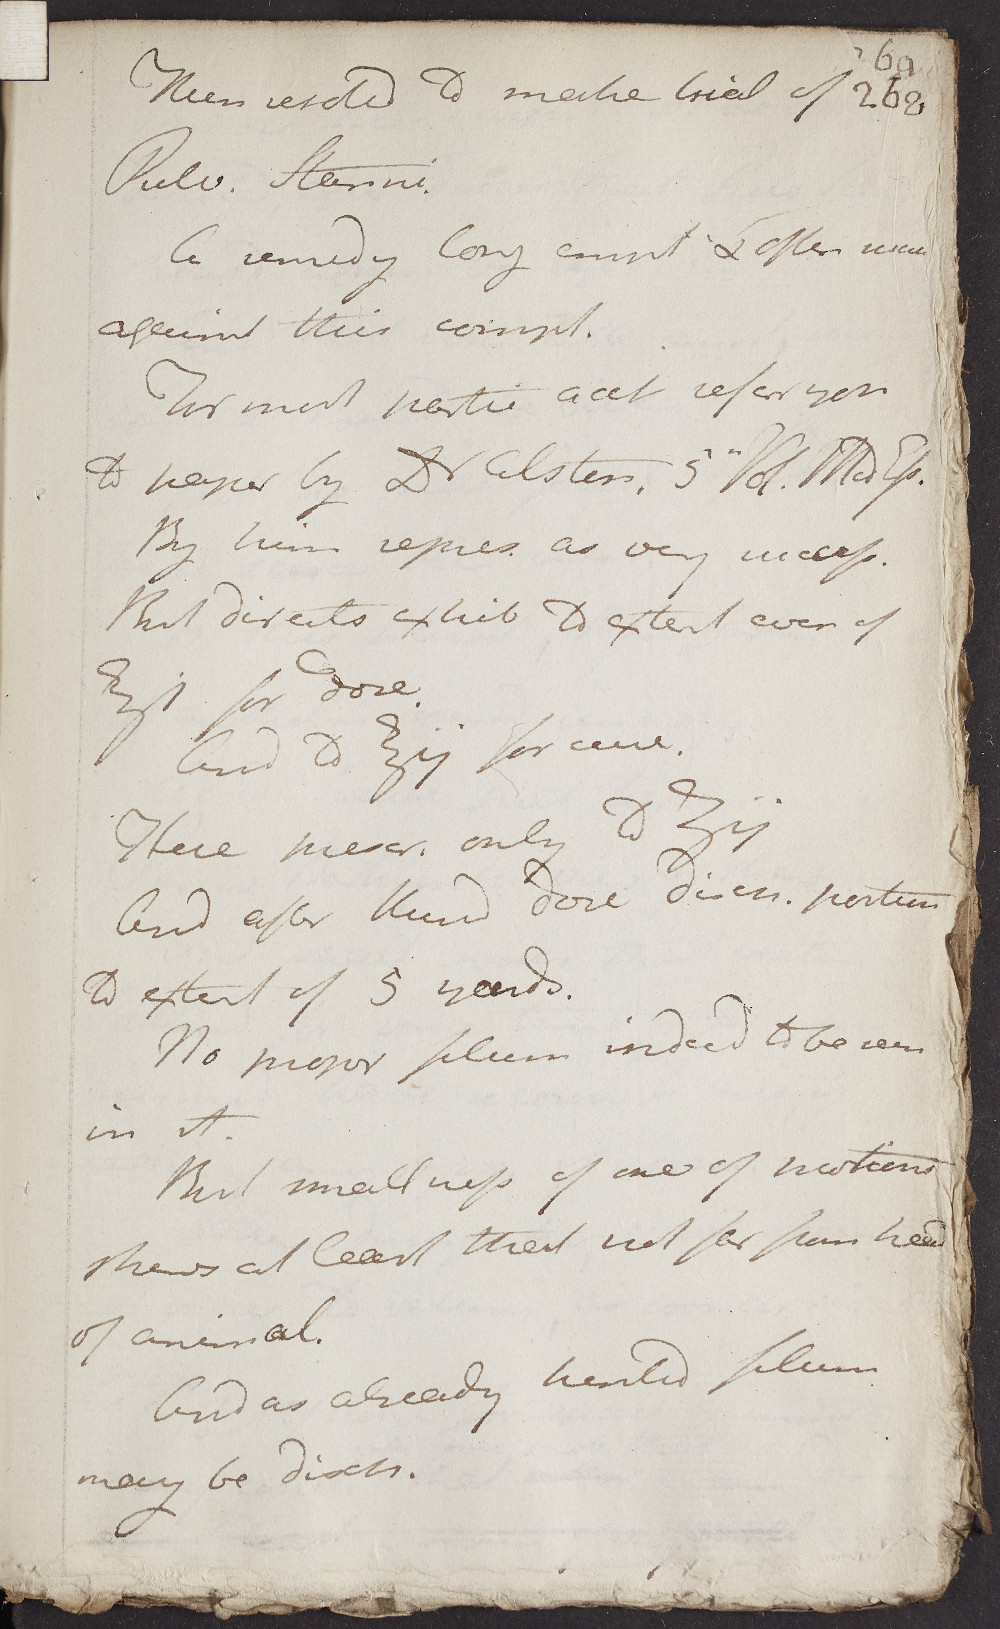 69
Then resolvd to make trial of 268
Pulv. Stanni.
A remedy long empl & often succ
against this compt.
For most partic acct refer you
to paper by Dr Alston, 5th Vol. Med Ess.
By him repres. as very success.
But directs exhib to extent even of
℥i for dose.
And to ℥ij for cure.
Here prescr. only to ʒij
And after third dose disch. portion
to extent of 5 yards.
No proper filum indeed to be seen
in it.
But smallness of one of portions
shews at least that not far from head
of animal.
And as already hinted filum
may be disch.